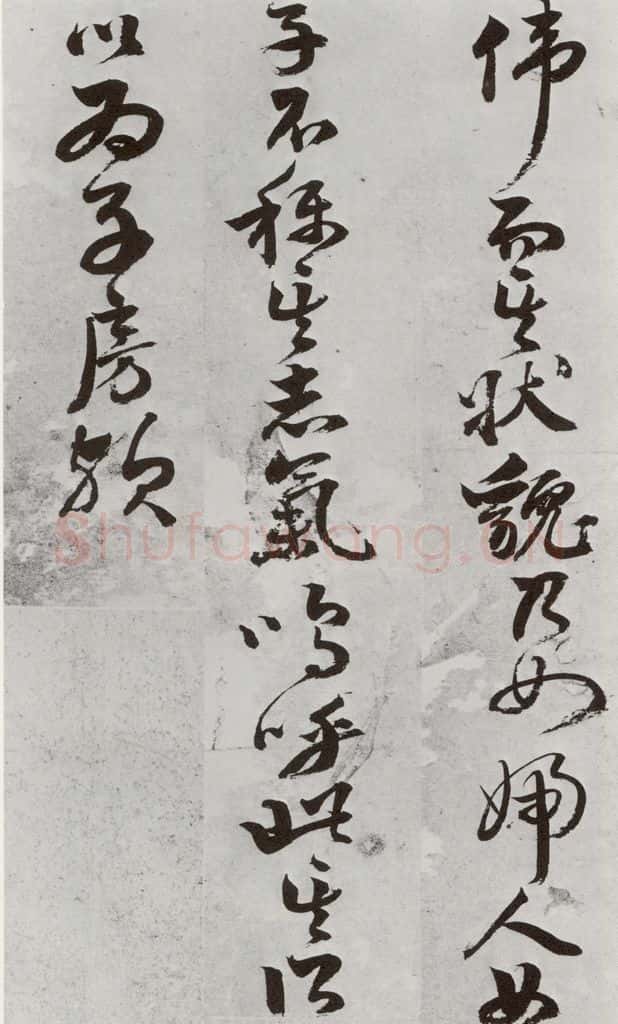 偉而其狀貌乃如婦人女
子不稱其志氣嗚呼此其所
以為子房歟
Shufawang.cn